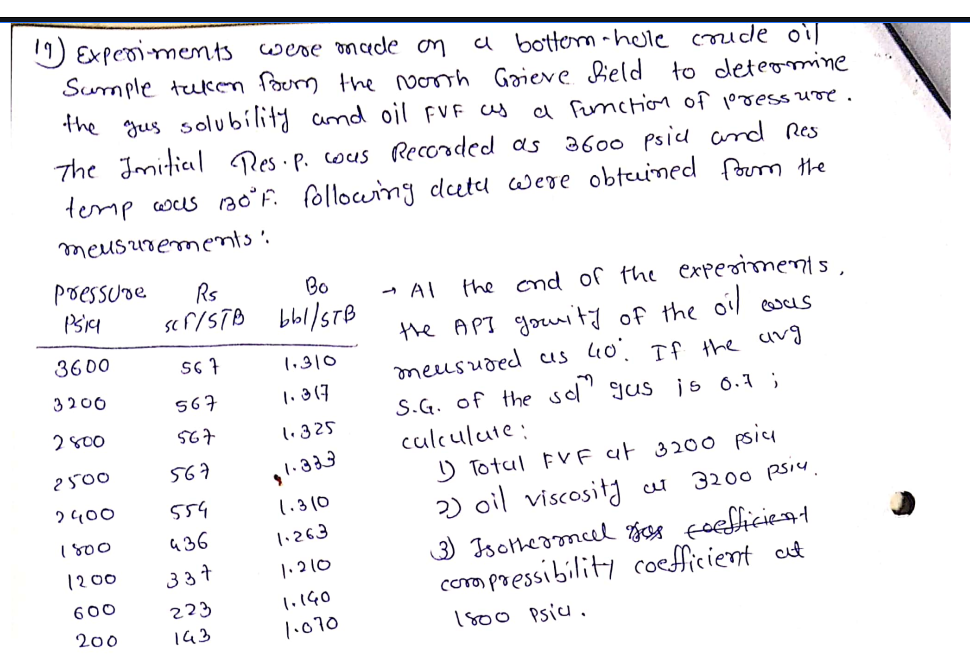 19) Experiments were made on a bottom-hole crude oil
Sample taken from the North Grieve field to determine
the gas solubility and oil FVF as a function of pressure.
The Initial Res. P. was Recorded as 3600 psia and Res
temp was 130°F. following data were obtained from the
measurements:
Pressure Rs Bo
Psia scf/STB bbl/STB
3600 567 1.310
3200 567 1.317
2800 567 1.325
2500 567 1.333
2400 554 1.310
1800 436 1.263
1200 337 1.210
600 223 1.140
200 143 1.070
→ At the end of the experiments,
the API gravity of the oil was
measured as 40°. If the avg
S.G. of the solⁿ gas is 0.7;
calculate:
1) Total FVF at 3200 psia
2) oil viscosity at 3200 psia.
3) Isothermal gas coefficient
compressibility coefficient at
1800 psia.